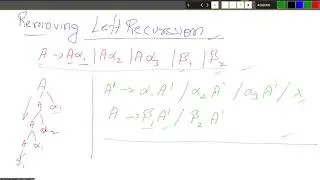 Removing Left Recursion
A → Aα₁ | Aα₂ | Aα₃ | β₁ | β₂
A
A α₁
A α₂
A α₁
β₁
A' → α₁A' / α₂A' / α₃A' / λ
A → β₁A' / β₂A'